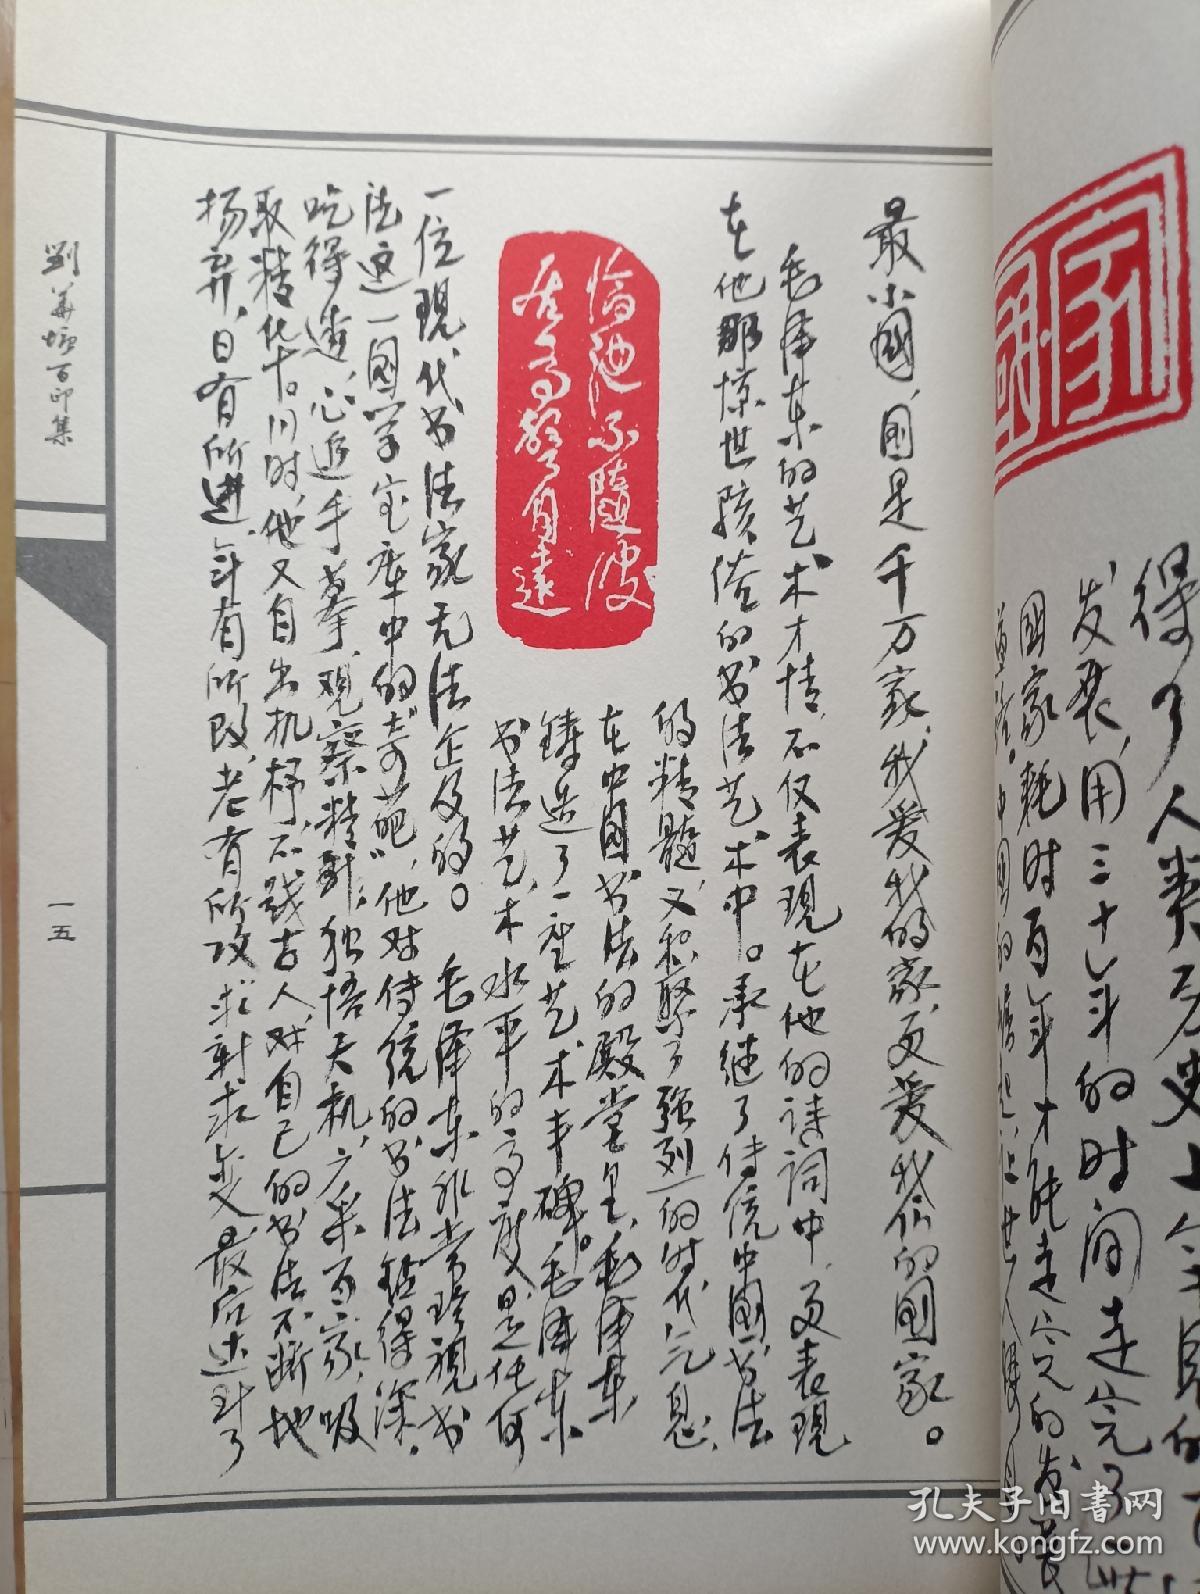 最小國,國是千万家,我爱我的家,更爱我们的國家。
毛泽东的艺术才情,不仅表現在他的诗詞中,更表現
在他那惊世骇俗的书法艺术中。承继了传统中國书法
的精髓,又积聚了强烈的时代气息,
在中国书法的殿堂里,毛泽东
铸造了一座艺术丰碑。毛泽东
书法艺术水平的高度,是任何
一位現代书法家无法企及的。毛泽东非常珍視书
法这一國学宝库中的“奇葩”,他对传统的书法钻得深,
吃得透,心追手摹,观察精到;独悟天机,广采百家,吸
取精华。同时,他又自出机杼,不践古人,对自己的书法不断地
扬弃,日有所進,年有所改,老有所攻,求新求变,最后达到了
劉華坛百印集
一五
國家
得了人类历史上
发展,用三十年的时间走完了
國家耗时百年才能走完的发展
孔夫子旧书网
www.kongfz.com